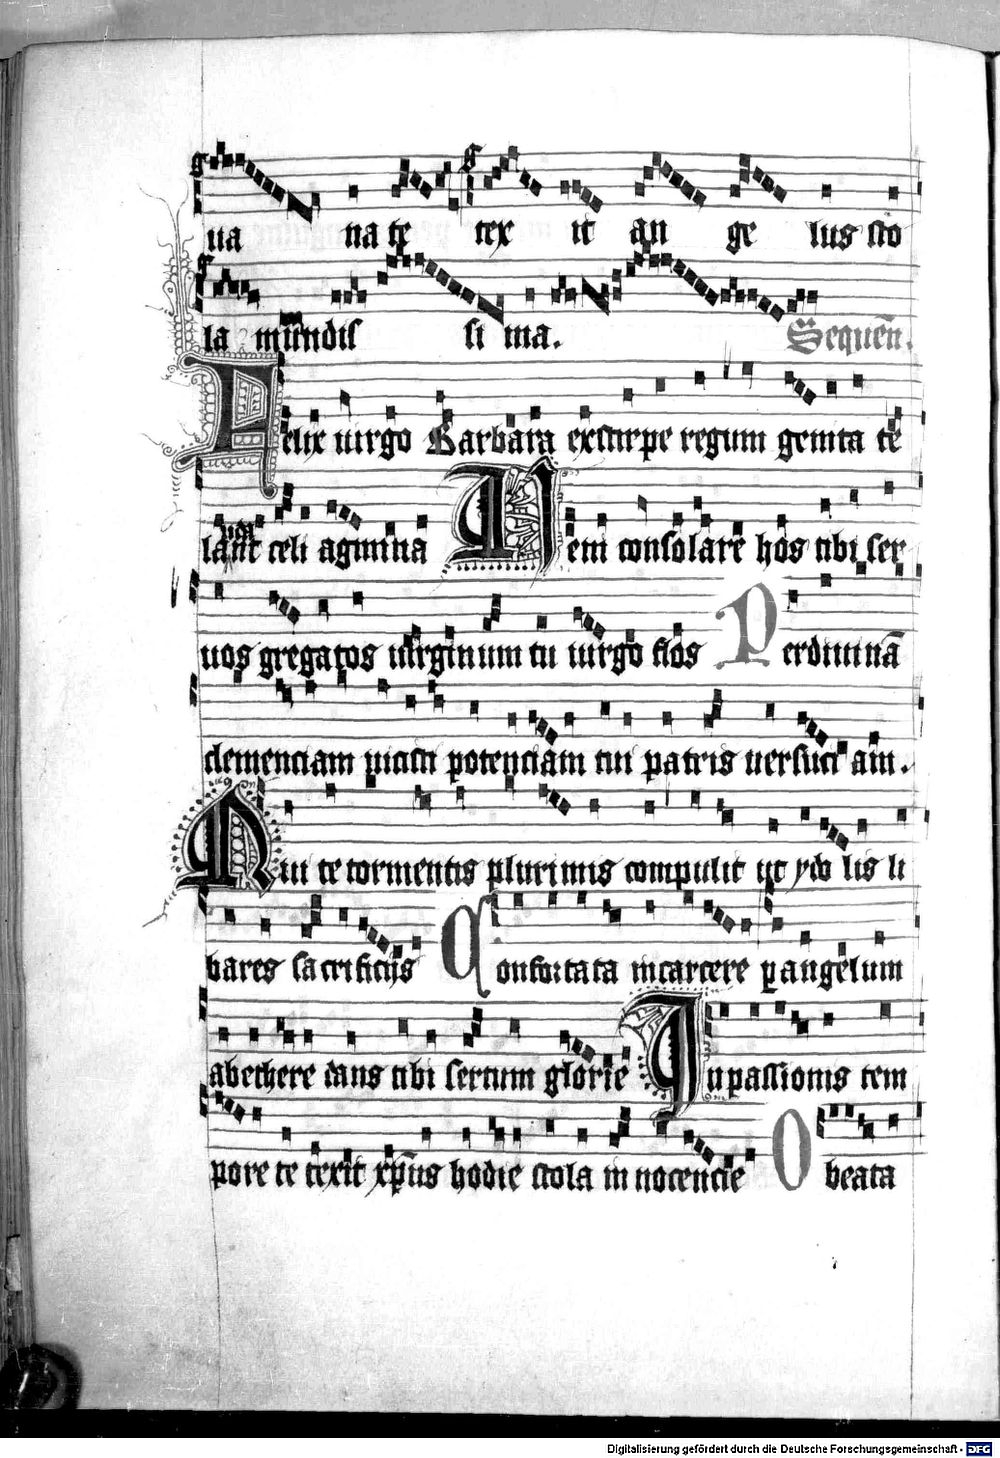 ua na te tex it an ge lus sto
la mundis si ma. Sequen.
Felix uirgo Barbara exstirpe regum genita te
laudant celi agmina Uem consolare hos tibi ser
uos gregatos uirginum tu uirgo flos Perdiuinā
clemenciam uicisti potenciam tui patris uersuci am.
Qui te tormentis plurimis compulit ut ydo lis li
bares sacrificijs Confortata incarcere p angelum
abethere dans tibi sertum glorie Inpassionis tem
pore te texit xp̄us hodie stola in nocencie O beata
Digitalisierung gefördert durch die Deutsche Forschungsgemeinschaft - DFG